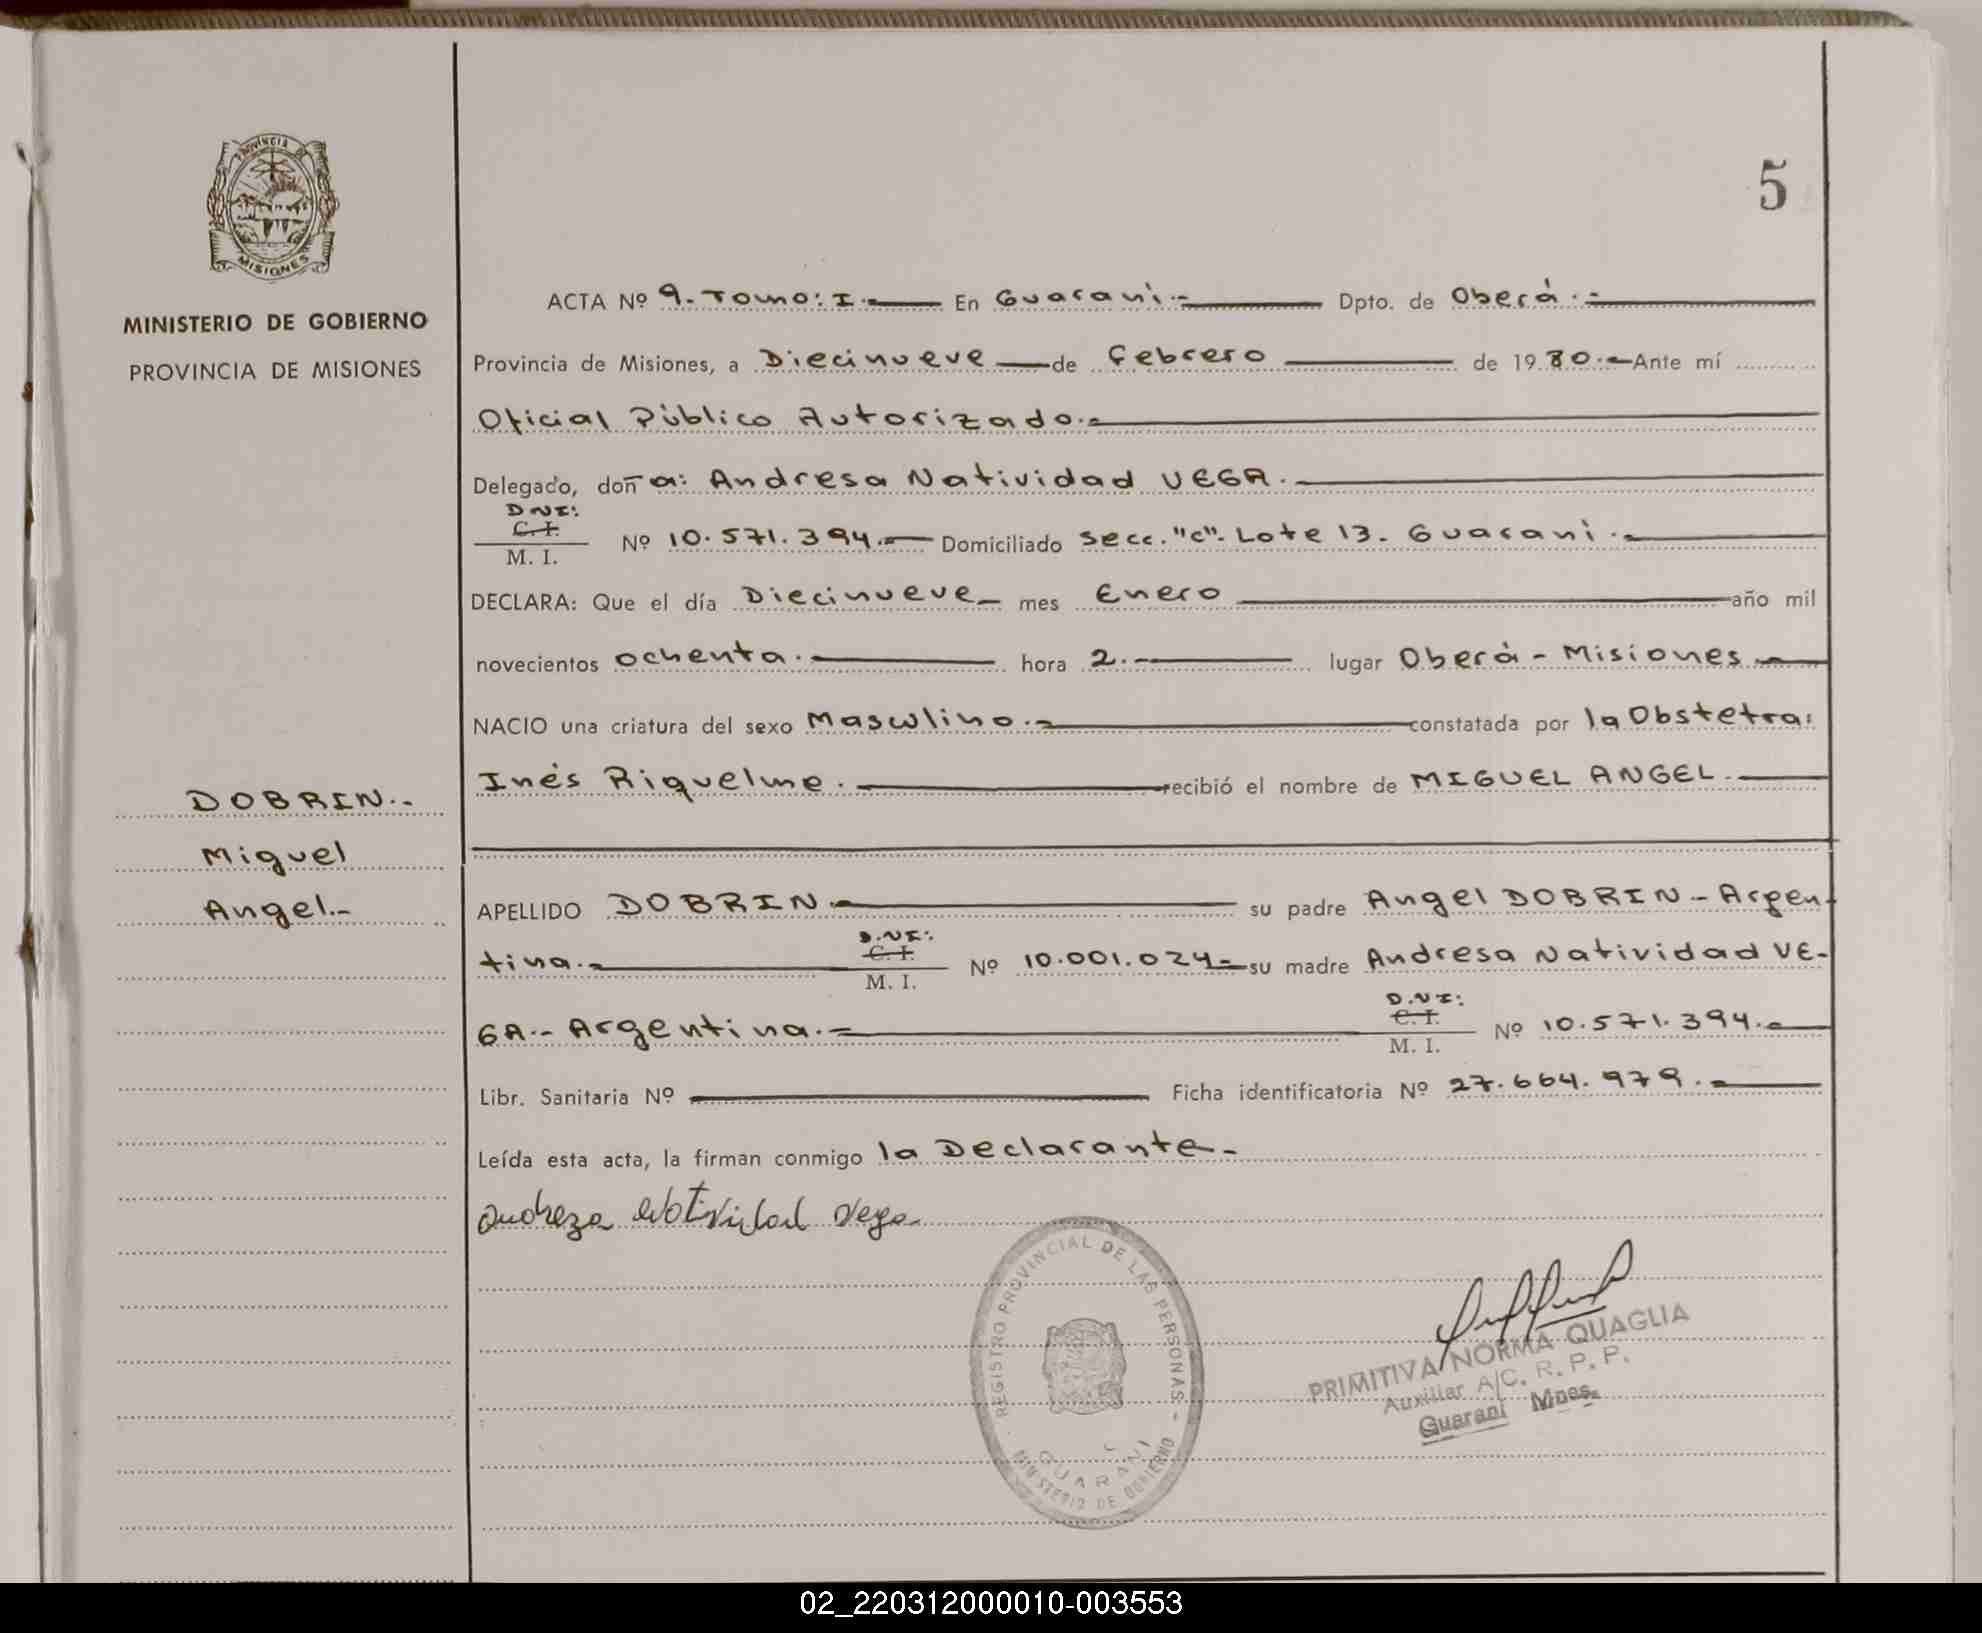 PROVINCIA DE
MISIONES
MINISTERIO DE GOBIERNO
PROVINCIA DE MISIONES
DOBRIN.-
Miguel
Angel.-
5
ACTA Nº 9. Tomo: I.- En Guaraní.- Dpto. de Oberá.-
Provincia de Misiones, a Diecinueve de Febrero de 1980.- Ante mí
Oficial Público Autorizado.-
Delegado, doña: Andresa Natividad VEGA.-
D.N.I:
C. I.
M. I. Nº 10.571.394.- Domiciliado secc. "c". Lote 13. Guaraní.-
DECLARA: Que el día Diecinueve- mes Enero año mil
novecientos ochenta.- hora 2.- lugar Oberá - Misiones.-
NACIO una criatura del sexo Masculino.- constatada por la Obstetra:
Inés Riquelme.- recibió el nombre de MIGUEL ANGEL.-
APELLIDO DOBRIN.- su padre Angel DOBRIN - Argen-
tina.- D.N.I: C. I. M. I. Nº 10.001.024- su madre Andresa Natividad VE-
GA.- Argentina.- D.N.I: C. I. M. I. Nº 10.571.394.-
Libr. Sanitaria Nº Ficha identificatoria Nº 27.664.979.-
Leída esta acta, la firman conmigo la Declarante-
Andreza Natividad Vega
REGISTRO PROVINCIAL DE LAS PERSONAS -
GUARANI
MINISTERIO DE GOBIERNO
PRIMITIVA NORMA QUAGLIA
Auxiliar A/C. R. P. P.
Guaraní Mnes.
02_220312000010-003553